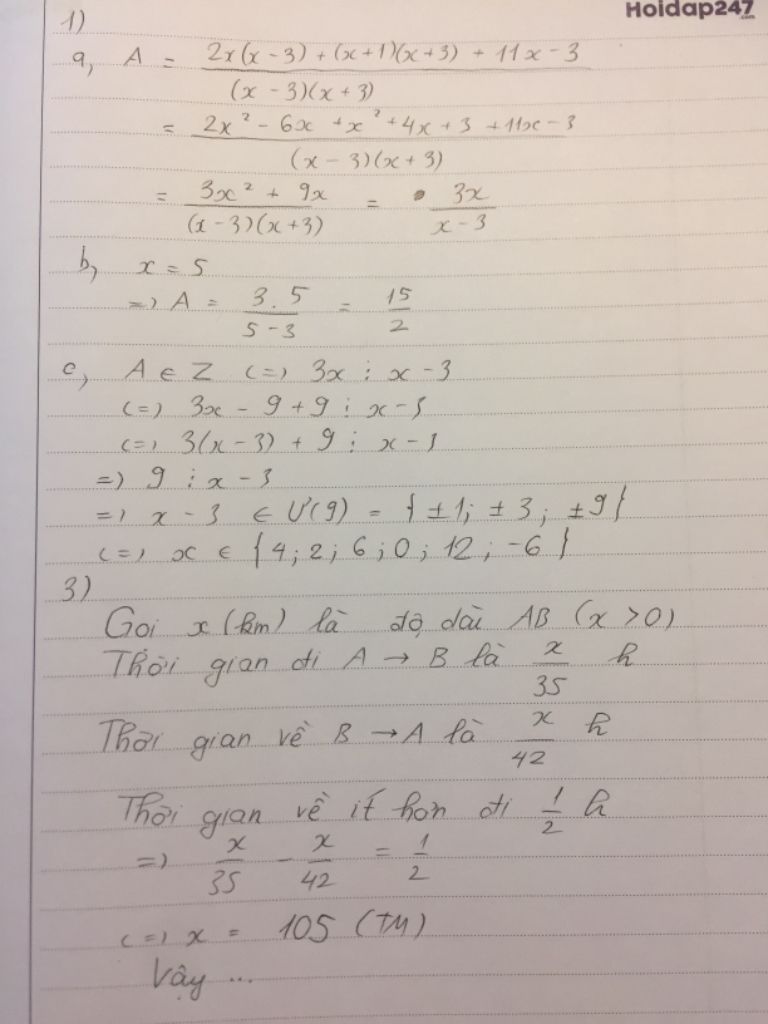 Hoidap247.com
1)
a, A = \frac{2x(x-3) + (x+1)(x+3) + 11x - 3}{(x-3)(x+3)}
= \frac{2x² - 6x + x² + 4x + 3 + 11x - 3}{(x-3)(x+3)}
= \frac{3x² + 9x}{(x-3)(x+3)} = \frac{3x}{x-3}
b, x = 5
=> A = \frac{3.5}{5-3} = \frac{15}{2}
c, A ∈ Z <=> 3x ⋮ x-3
<=> 3x - 9 + 9 ⋮ x-3
<=> 3(x-3) + 9 ⋮ x-3
=> 9 ⋮ x-3
=> x-3 ∈ Ư(9) = {±1; ±3; ±9}
<=> x ∈ {4; 2; 6; 0; 12; -6}
3)
Goi x (km) là độ dài AB (x > 0)
Thời gian đi A → B là \frac{x}{35} h
Thời gian về B → A là \frac{x}{42} h
Thời gian về ít hơn đi \frac{1}{2} h
=> \frac{x}{35} - \frac{x}{42} = \frac{1}{2}
<=> x = 105 (TM)
Vậy ...